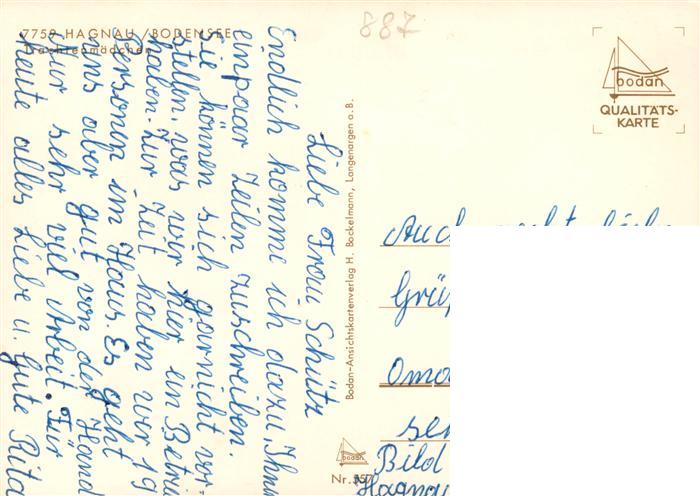 7759 HAGNAU/BODENSEE
Trachtenmädchen
887
bodan
QUALITÄTS-
KARTE
Liebe Frau Schütz
Endlich komme ich dazu Ihnen
ein paar Zeilen zuschreiben.
Sie können sich garnicht vor-
stellen, was wir hier ein Betrie
haben. Zur Zeit haben wir 19
Personen im Haus. Es geht
uns aber gut von der Hand
nur sehr viel Arbeit. Für
heute alles Liebe u. Gute Rita
Bodan-Ansichtskartenverlag H. Bockelmann, Langenargen a. B.
bodan
Nr. 557
Auch
Grüß
Oma
Bild
Hagnau